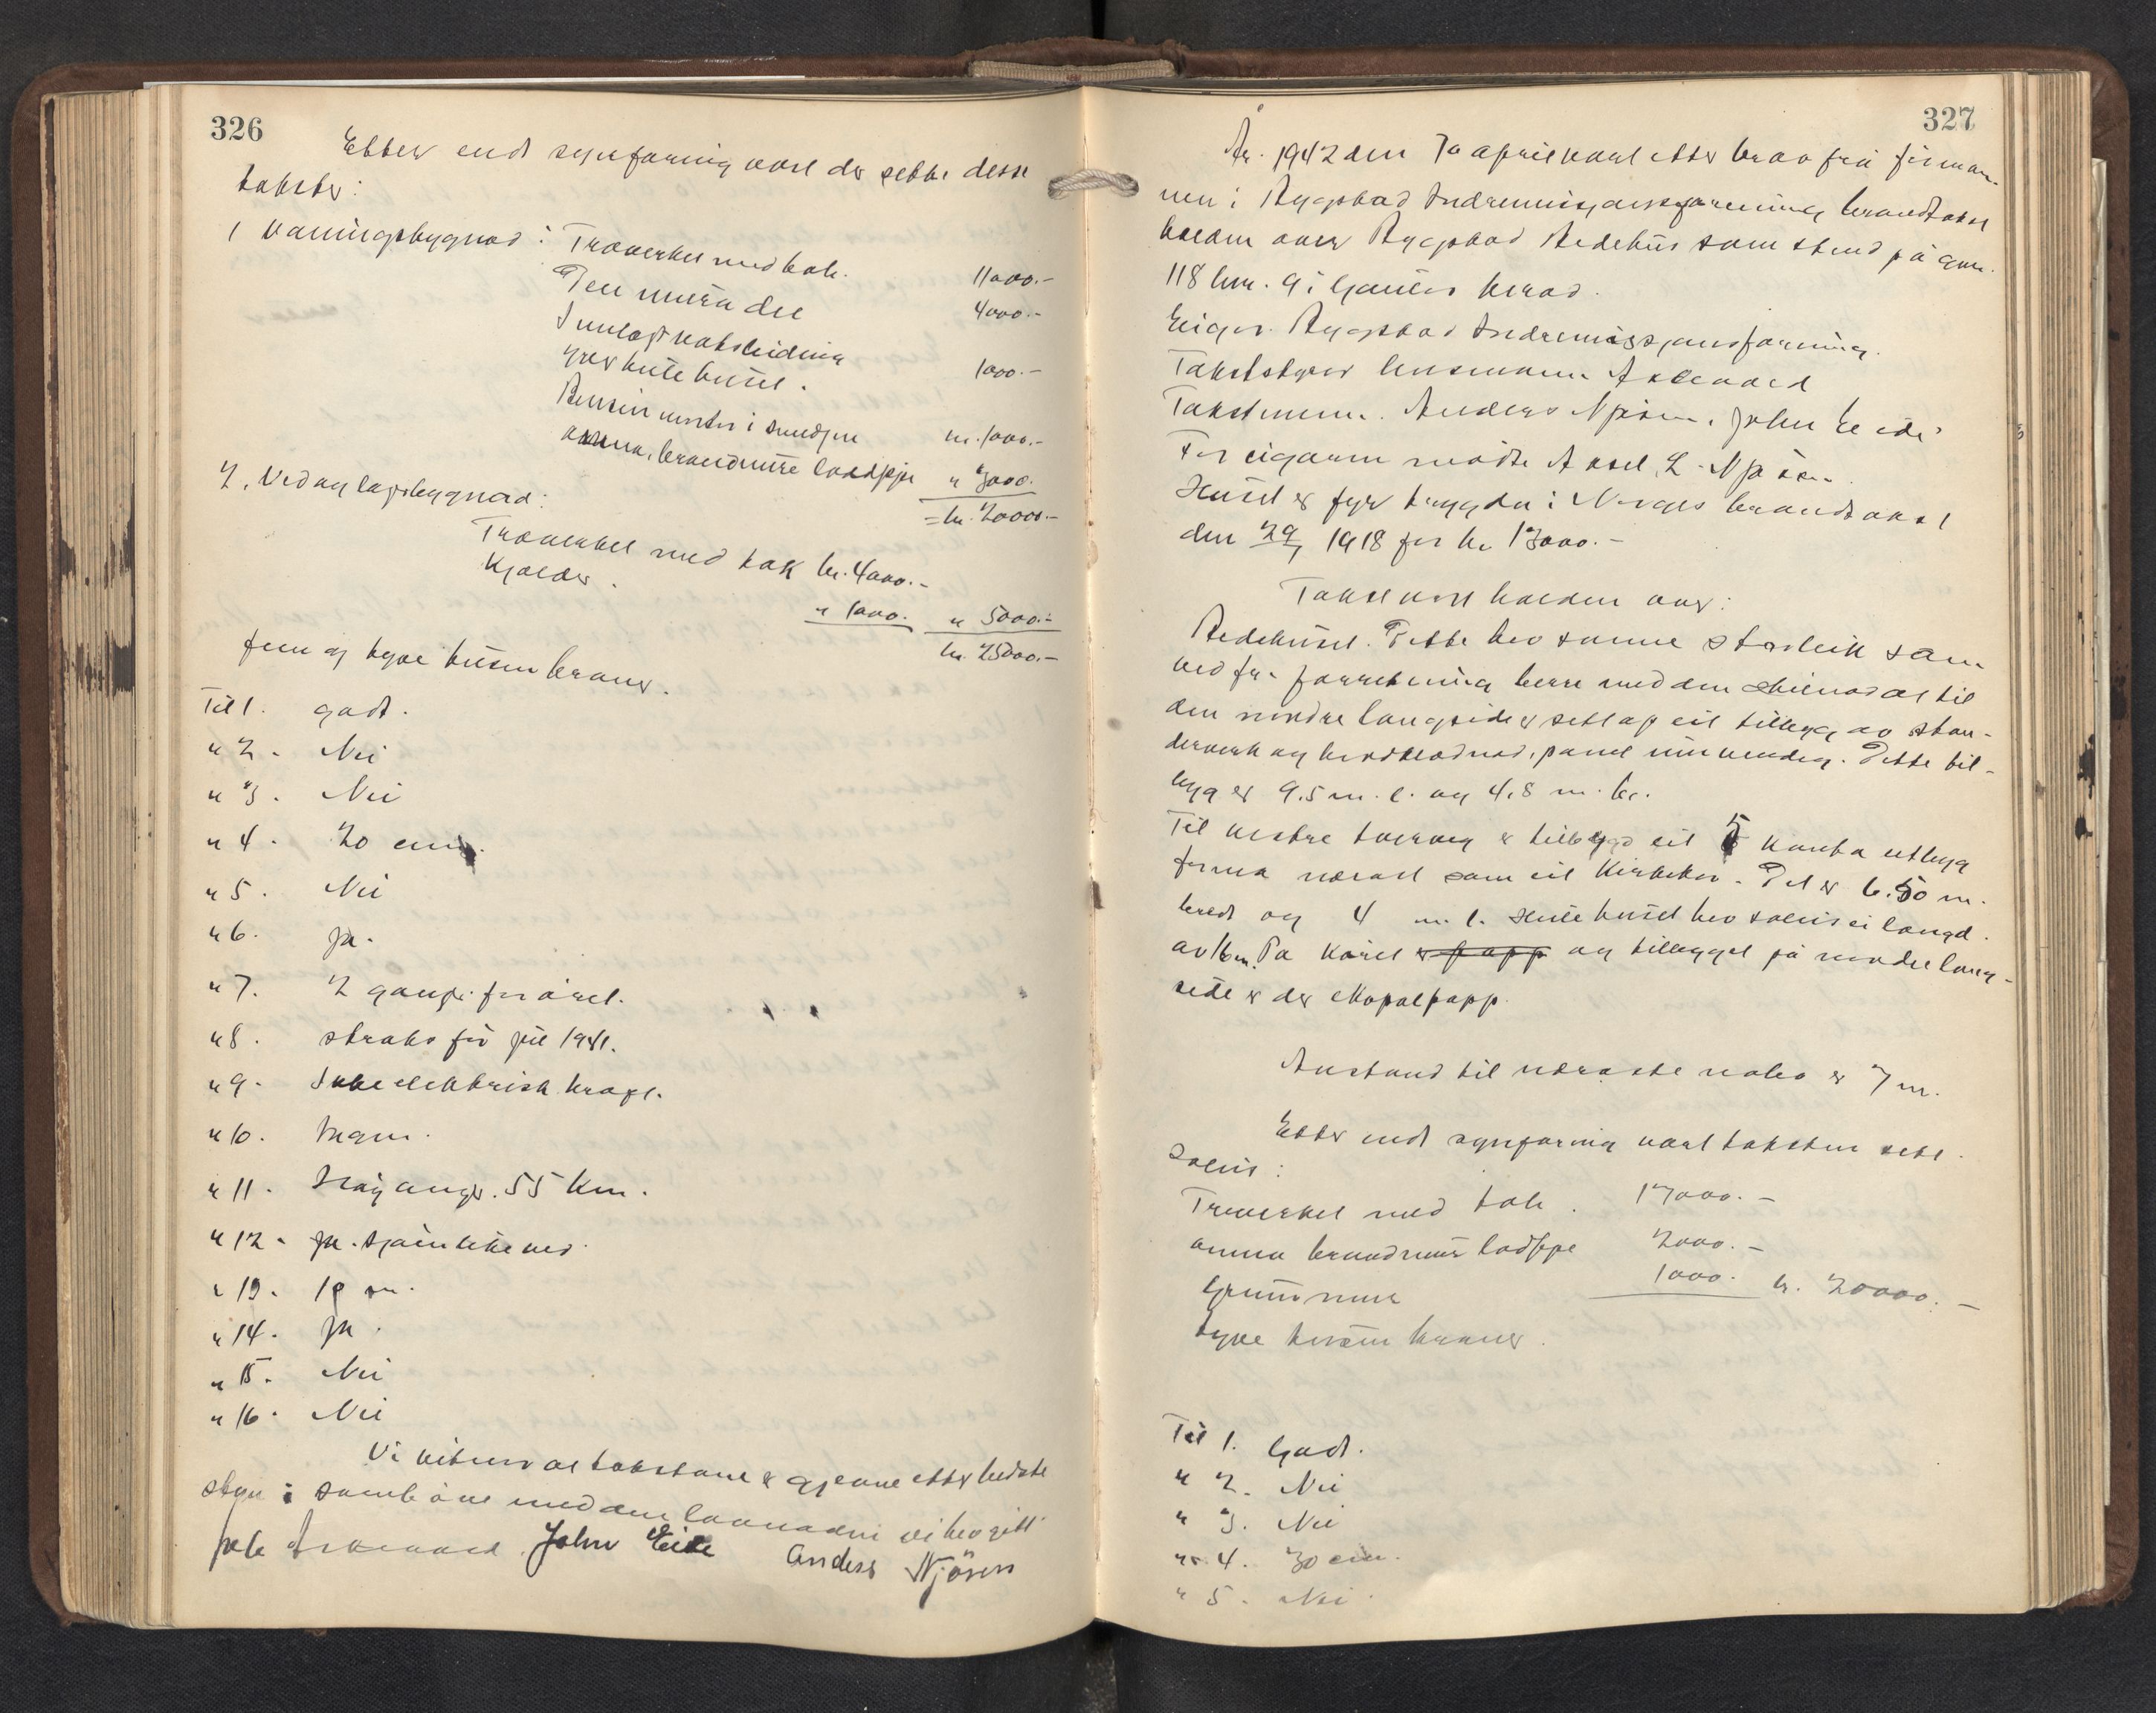 326
Etter endt synfaring vart der sette desse
takster:
1 Vaningsbygnad: Trøverket med tak. 11000.-
Den mura del 4000.-
Innlagt vatsleidning
yver heile huset. 1000.-
Bensin motor i smedjen kr. 1000.-
anna, brandmure loddpipe " 3000.
= kr. 20000.-
2. Ved og lagsbygnad:
Trøverket med tak kr. 4000.-
Kjælder. " 1000. " 5000.-
kr. 25000.-
fem og tyve tusen kroner.
Til 1. godt.
" 2. Nei
" 3. Nei
" 4. 20 cm.
" 5. Nei
" 6. ja.
" 7. 2 gange for året.
" 8. straks før jul 1941.
" 9. Ikke elektrisk kraft.
" 10. Ingen.
" 11. 55 km.
" 12. ja.
" 13. m.
" 14. ja.
" 15. Nei
" 16. Nei
Vi vitner at takstane er gjevne etter bedste
skyn i samhøve med den lovnaden vi hev gitt
John Eide Anders Njøsen
327
År. 1942 den 7a april vart etter krav frå forman-
nen i Byggstad Indremisjonsforening brandtakst
halden over Byggstad Bedehus som stend på gnr.
118 bnr. 9 i Gaular herad.
Eigar. Byggstad Indremissjonsforening.
Takststyrer lensmann Askevold
Takstmenn. Anders Njøsen. John Eide
For eigaren møtte Aksel L. Njøsen.
Huset er fyrr trygda i Norges brandtakst
den 29/ 1918 for kr. 13000.-
Takst vart halden over:
Bedehuset. Dette hev samme storleik som
ved fr. forretning berre med den skilnad at til
den nordre langside er sett op eit tilbygg av stan-
derverk og bordklædnad, panel innvendig. Dette til-
bygg er 9.5 m. l. og 4,8 m. br.
Til vestre tverveg er tilbygd eit 5 kanta utbygg
forma nærast som eit Kirkekor. Det er 6.50 m.
bredt og 4 m. l. Heile huset hev soleis ei langd
av 16 m. På Koret er papp og tilbygget på nordre lang-
side er der skopalpapp.
Avstand til næraste nabo er 7 m.
Etter endt synfaring vart taksten sett
soleis:
Treverket med tak. 17000.-
anna brandmur loddpipe 2000.-
Grunnmur 1000. kr. 20000.-
tyve tusen kroner.
Til 1. Godt.
" 2. Nei
" 3. Nei
" 4. 30 cm.
" 5. Nei